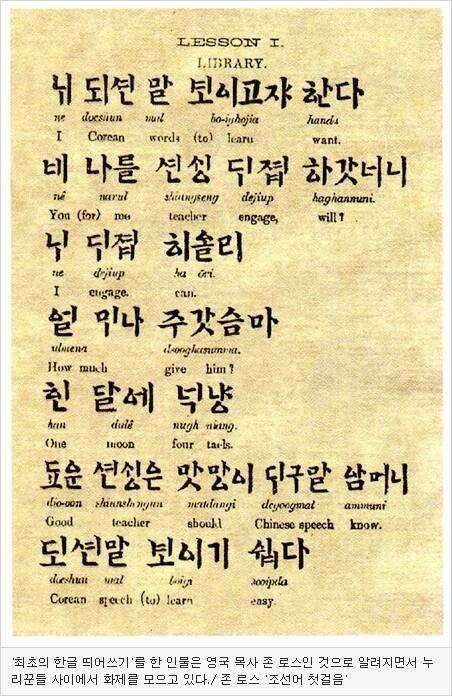 LESSON I.
LIBRARY.
ᄂᆡ 되션 말 보이고쟈 한다
ne doeshun mal bo-ighojia handa
I Corean words (to) learn want.
네 나를 션ᄉᆡᆼ ᄃᆡ졉 하갓너니
nê narul dejiup haghanmuni.
You (for) me teacher engage, will?
ᄂᆡ ᄃᆡ졉 하올리
ne dejiup ha ôri.
I engage. can.
얼ᄆᆡ나 주갓슴마
ulmena dsooghasumma.
How much give him?
한 달에 넉냥
han dalê nugh niang.
One moon four taels.
됴운 션ᄉᆡᆼ은 맛당이 ᄃᆡ구말 암머니
dio-oon matdangi degoogmal ammuni
Good teacher should Chinese speech know.
되션말 보이기 쉽다
doeshun mal boigi sooipda
Corean speech (to) learn easy.
'최초의 한글 띄어쓰기'를 한 인물은 영국 목사 존 로스인 것으로 알려지면서 누
리꾼들 사이에서 화제를 모으고 있다./ 존 로스 '조선어 첫걸음'